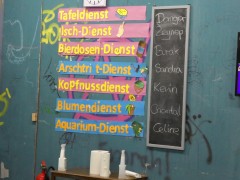 Tafeldienst
Tisch-Dienst
Bierdosen-Dienst
Arschtritt-Dienst
Kopfnussdienst
Blumendienst
Aquarium-Dienst
Danger
Zeynep
Burak
Sandra
Kevin
Chantal
Celine